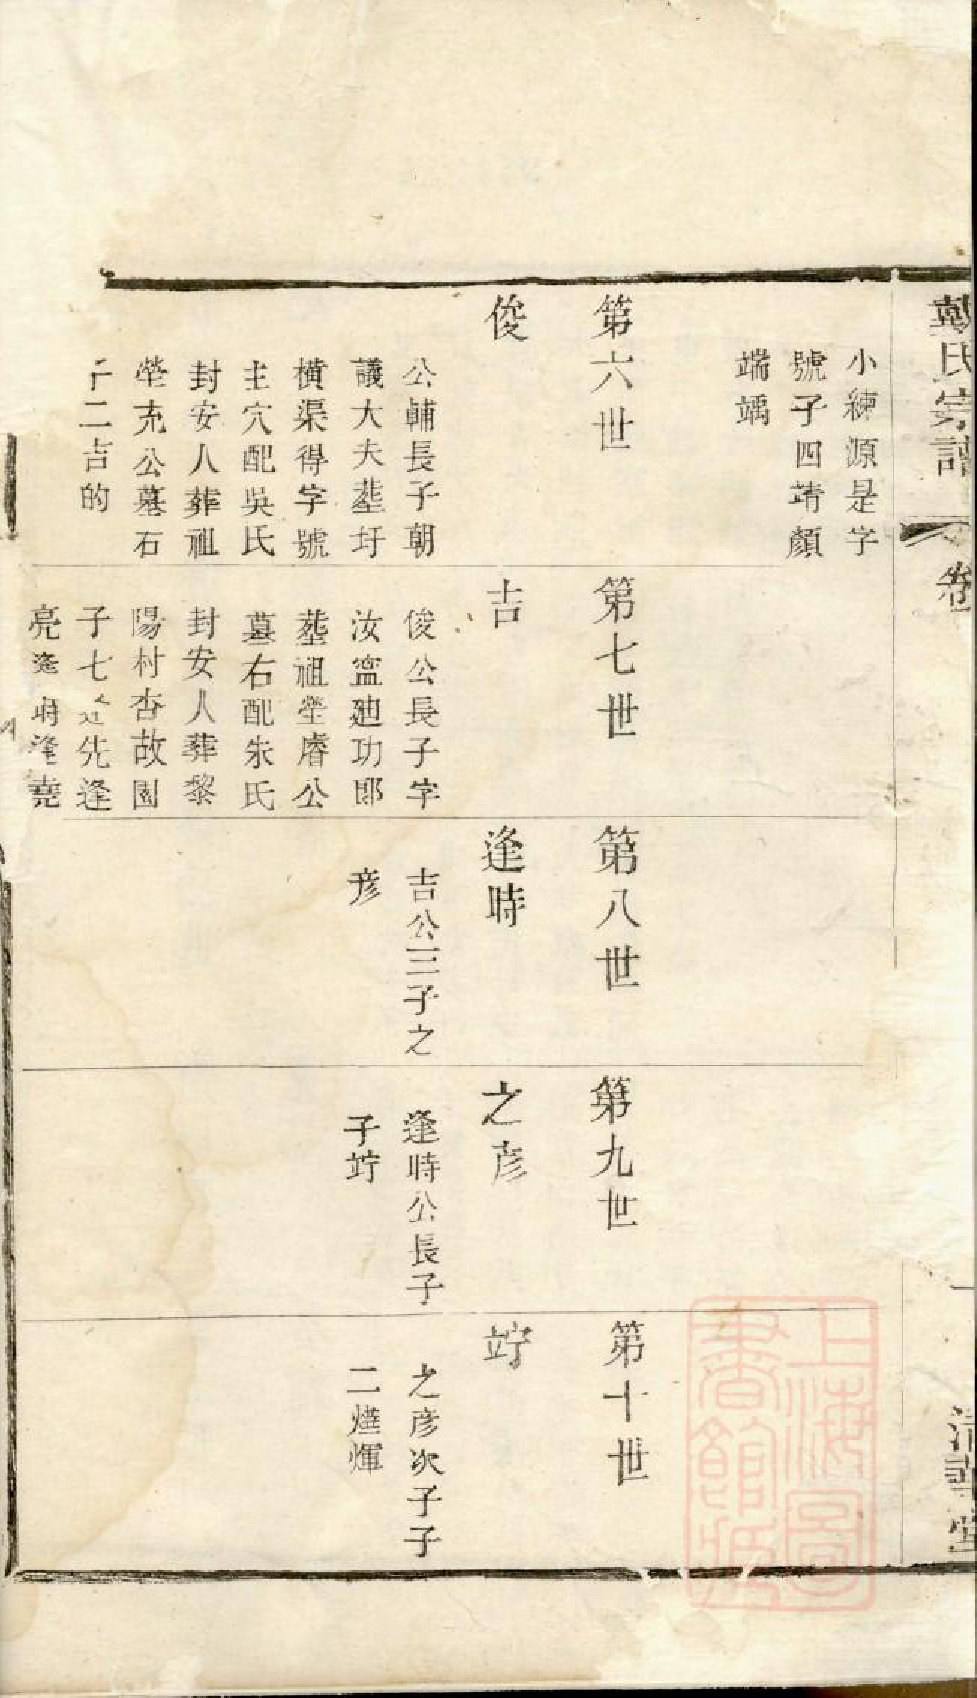 戴氏宗譜
卷
清
小練源是字
號子四靖顏
端竬
第六世
俊
公輔長子朝
議大夫塟圩
橫渠得字號
主穴配吳氏
封安人葬祖
塋充公墓石
子二吉的
第七世
吉
俊公長子字
汝寍廸功郎
塟祖塋睿公
墓右配朱氏
封安人葬黎
陽村杏故園
子七先逢
亮逢時逢堯
第八世
逢時
吉公三子之
彦
第九世
之彦
逢時公長子
子竚
第十世
竚
之彦次子子
二煃煇
上海圖
書館藏